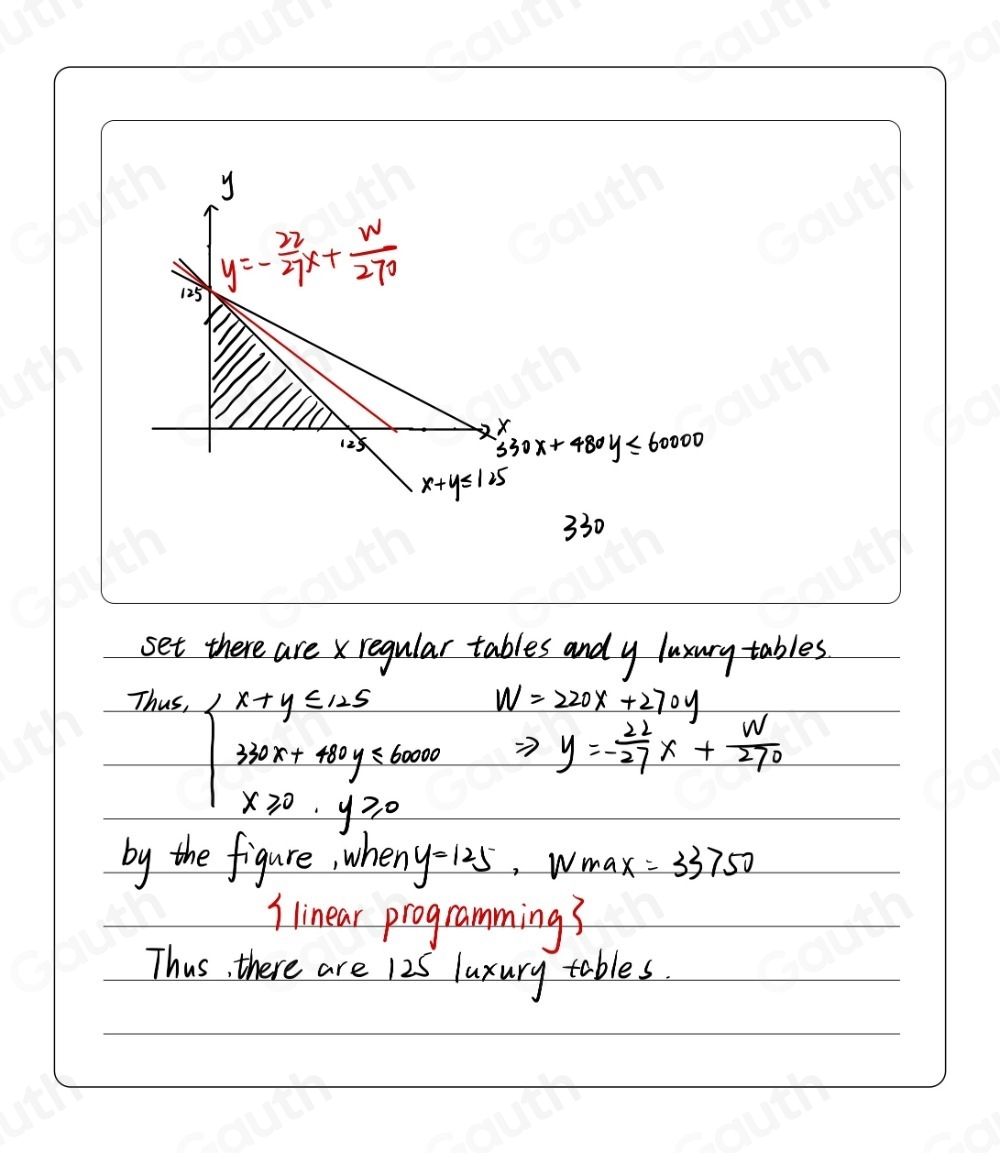 y
y = - 22/27 x + W/270
125
x
125
330x + 480y ≤ 60000
x+y≤125
330
set there are x regular tables and y luxury tables.
Thus, { x + y ≤ 125 W = 220x + 270y
330x + 480y ≤ 60000 ⇒ y = - 22/27 x + W/270
x ≥ 0 . y ≥ 0
by the figure , when y=125 , Wmax = 33750
{ linear programming }
Thus , there are 125 luxury tables.
Gauth